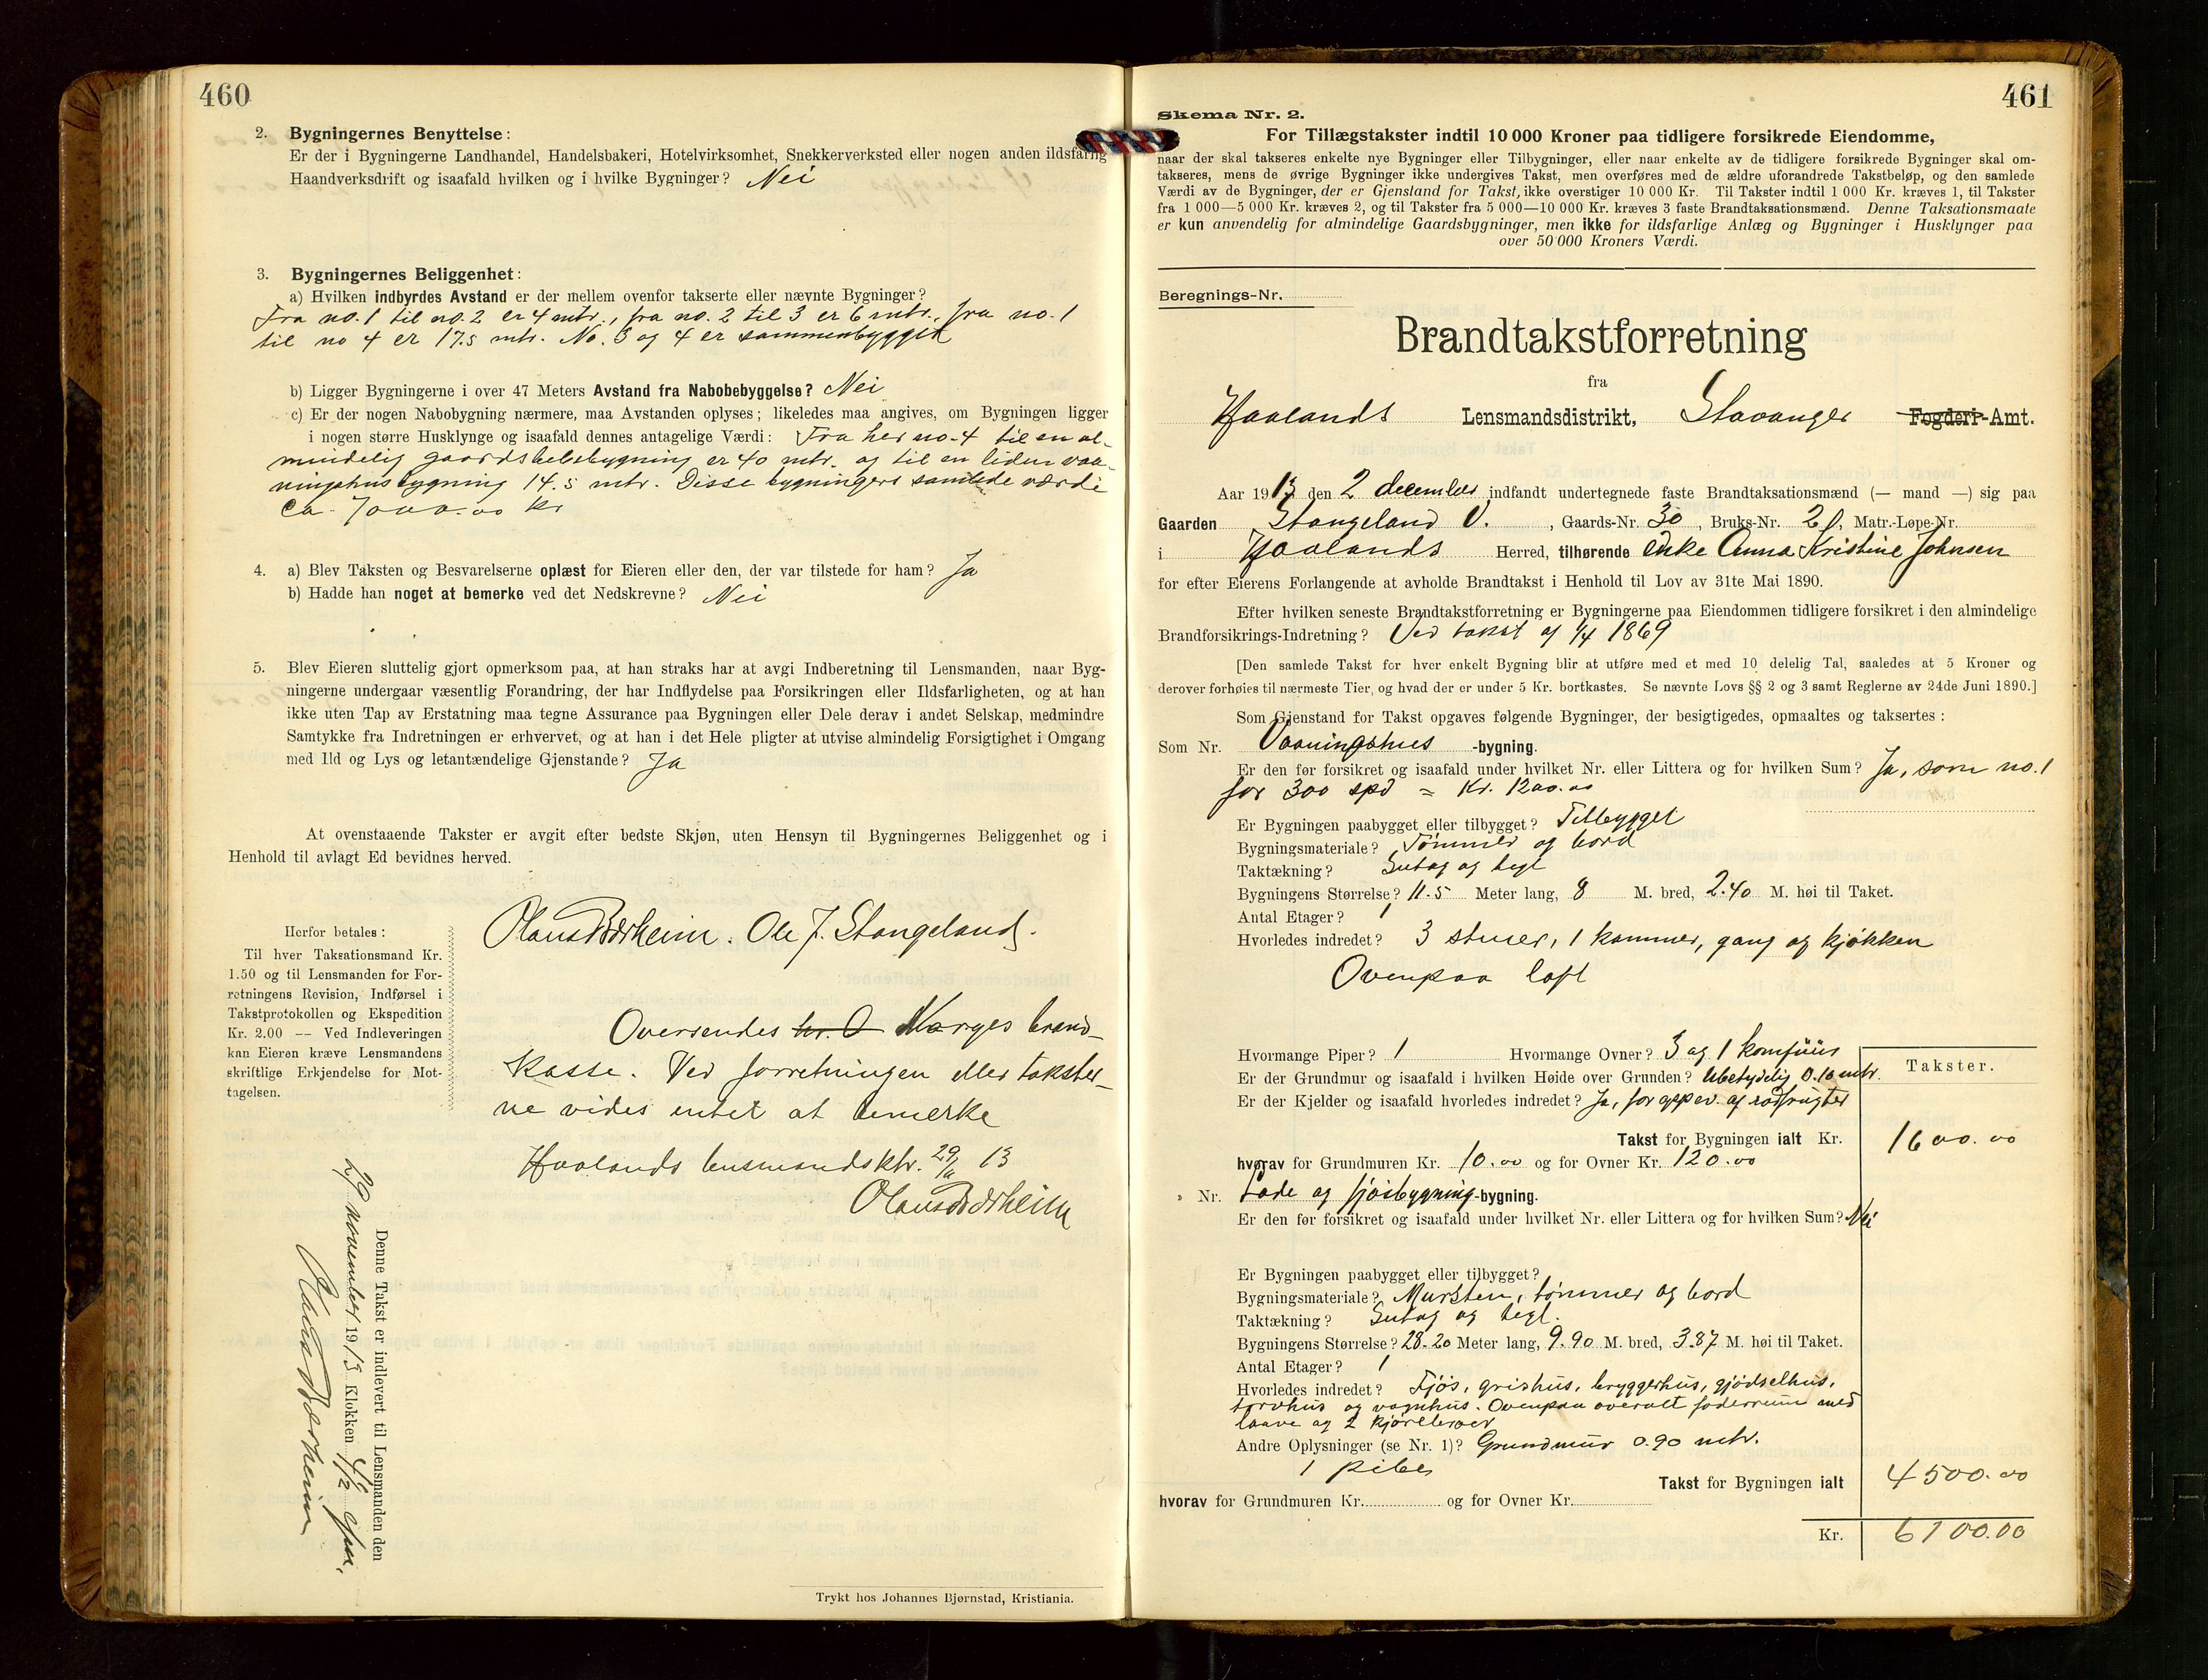 460
2. Bygningernes Benyttelse:
Er der i Bygningerne Landhandel, Handelsbakeri, Hotelvirksomhet, Snekkerverksted eller nogen anden ildsfarlig
Haandverksdrift og isaafald hvilken og i hvilke Bygninger? Nei
3. Bygningernes Beliggenhet:
a) Hvilken indbyrdes Avstand er der mellem ovenfor takserte eller nævnte Bygninger?
Fra no. 1 til no. 2 er 4 mtr., fra no. 2 til 3 er 6 mtr., fra no. 1
til no 4 er 17.5 mtr. No. 3 og 4 er sammenbygget
b) Ligger Bygningerne i over 47 Meters Avstand fra Nabobebyggelse? Nei
c) Er der nogen Nabobygning nærmere, maa Avstanden oplyses; likeledes maa angives, om Bygningen ligger
i nogen større Husklynge og isaafald dennes antagelige Værdi: Fra her no. 4 til en al-
mindelig gaardsbebygning er 40 mtr. og til en liden vaa-
ningshusbygning 14.5 mtr. Disse bygningers samlede værdi
Ca. 7000.00 kr
4. a) Blev Taksten og Besvarelserne oplæst for Eieren eller den, der var tilstede for ham? Ja
b) Hadde han noget at bemerke ved det Nedskrevne? Nei
5. Blev Eieren sluttelig gjort opmerksom paa, at han straks har at avgi Indberetning til Lensmanden, naar Byg-
ningerne undergaar væsentlig Forandring, der har Indflydelse paa Forsikringen eller Ildsfarligheten, og at han
ikke uten Tap av Erstatning maa tegne Assurance paa Bygningen eller Dele derav i andet Selskap, medmindre
Samtykke fra Indretningen er erhvervet, og at han i det Hele pligter at utvise almindelig Forsigtighet i Omgang
med Ild og Lys og letantændelige Gjenstande? Ja
At ovenstaaende Takster er avgit efter bedste Skjøn, uten Hensyn til Bygningernes Beliggenhet og i
Henhold til avlagt Ed bevidnes herved.
Olaus Bærheim. Ole J. Stangeland.
Herfor betales:
Til hver Taksationsmand Kr.
1.50 og til Lensmanden for For-
retningens Revision, Indførsel i
Takstprotokollen og Ekspedition
Kr. 2.00 — Ved Indleveringen
kan Eieren kræve Lensmandens
skriftlige Erkjendelse for Mot-
tagelsen.
Oversendes hr. O Norges brand-
kasse. Ved forretningen eller takster-
ne vides intet at bemerke
Haalands lensmandsktr. 29/11 13
Olaus Bærheim
Denne Takst er indlevert til Lensmanden den
29 november 1913 Klokken 4 1/2 efm.
Olaus Bærheim
Trykt hos Johannes Bjørnstad, Kristiania.
461
Skema Nr. 2.
For Tillægstakster indtil 10 000 Kroner paa tidligere forsikrede Eiendomme,
naar der skal takseres enkelte nye Bygninger eller Tilbygninger, eller naar enkelte av de tidligere forsikrede Bygninger skal om-
takseres, mens de øvrige Bygninger ikke undergives Takst, men overføres med de ældre uforandrede Takstbeløp, og den samlede
Værdi av de Bygninger, der er Gjenstand for Takst, ikke overstiger 10 000 Kr. Til Takster indtil 1 000 Kr. kræves 1, til Takster
fra 1 000—5 000 Kr. kræves 2, og til Takster fra 5 000—10 000 Kr. kræves 3 faste Brandtaksationsmænd. Denne Taksationsmaate
er kun anvendelig for almindelige Gaardsbygninger, men ikke for ildsfarlige Anlæg og Bygninger i Husklynger paa
over 50 000 Kroners Værdi.
Beregnings-Nr.
Brandtakstforretning
fra
Haalands Lensmandsdistrikt, Stavanger Fogderi-Amt.
Aar 1913 den 2 december indfandt undertegnede faste Brandtaksationsmænd (— mand —) sig paa
Gaarden Stangeland V., Gaards-Nr. 30, Bruks-Nr. 20, Matr.-Løpe-Nr.
i Haalands Herred, tilhørende enke Anna Kristine Johnsen
for efter Eierens Forlangende at avholde Brandtakst i Henhold til Lov av 31te Mai 1890.
Efter hvilken seneste Brandtakstforretning er Bygningerne paa Eiendommen tidligere forsikret i den almindelige
Brandforsikrings-Indretning? Ved takst af 1/4 1869
[Den samlede Takst for hver enkelt Bygning blir at utføre med et med 10 delelig Tal, saaledes at 5 Kroner og
derover forhøies til nærmeste Tier, og hvad der er under 5 Kr. bortkastes. Se nævnte Lovs §§ 2 og 3 samt Reglerne av 24de Juni 1890.]
Som Gjenstand for Takst opgaves følgende Bygninger, der besigtigedes, opmaaltes og taksertes:
Som Nr. Vaaningshus -bygning.
Er den før forsikret og isaafald under hvilket Nr. eller Littera og for hvilken Sum? Ja, som no. 1
for 300 spd = Kr. 1200.00
Er Bygningen paabygget eller tilbygget? Tilbygget
Bygningsmateriale? Tømmer og bord
Taktækning? Sutag og tegl
Bygningens Størrelse? 11.5 Meter lang, 8 M. bred, 2.40 M. høi til Taket.
Antal Etager? 1
Hvorledes indredet? 3 stuer, 1 kammer, gang og kjøkken
Ovenpaa loft
Hvormange Piper? 1 Hvormange Ovner? 3 og 1 komfüür
Er der Grundmur og isaafald i hvilken Høide over Grunden? Ubetydelig 0.10 mtr.
Er der Kjelder og isaafald hvorledes indredet? Ja, for opbev. af rodfrugter
Takster.
Takst for Bygningen ialt Kr. 1600.00
hvorav for Grundmuren Kr. 10.00 og for Ovner Kr. 120.00
" Nr. Lade og fjøsbygning-bygning.
Er den før forsikret og isaafald under hvilket Nr. eller Littera og for hvilken Sum? Nei
Er Bygningen paabygget eller tilbygget?
Bygningsmateriale? Mursten, tømmer og bord
Taktækning? Sutag og tegl.
Bygningens Størrelse? 28.20 Meter lang, 9.90 M. bred, 3.87 M. høi til Taket.
Antal Etager? 1
Hvorledes indredet? Fjøs, grishus, bryggerhus, gjødselhus,
torvhus og vognhus. Ovenpaa overalt foderrum med
laave og 2 kjørebroer
Andre Oplysninger (se Nr. 1)? Grundmur 0.90 mtr.
1 pibe
Takst for Bygningen ialt 4500.00
hvorav for Grundmuren Kr. og for Ovner Kr.
Kr. 6100.00